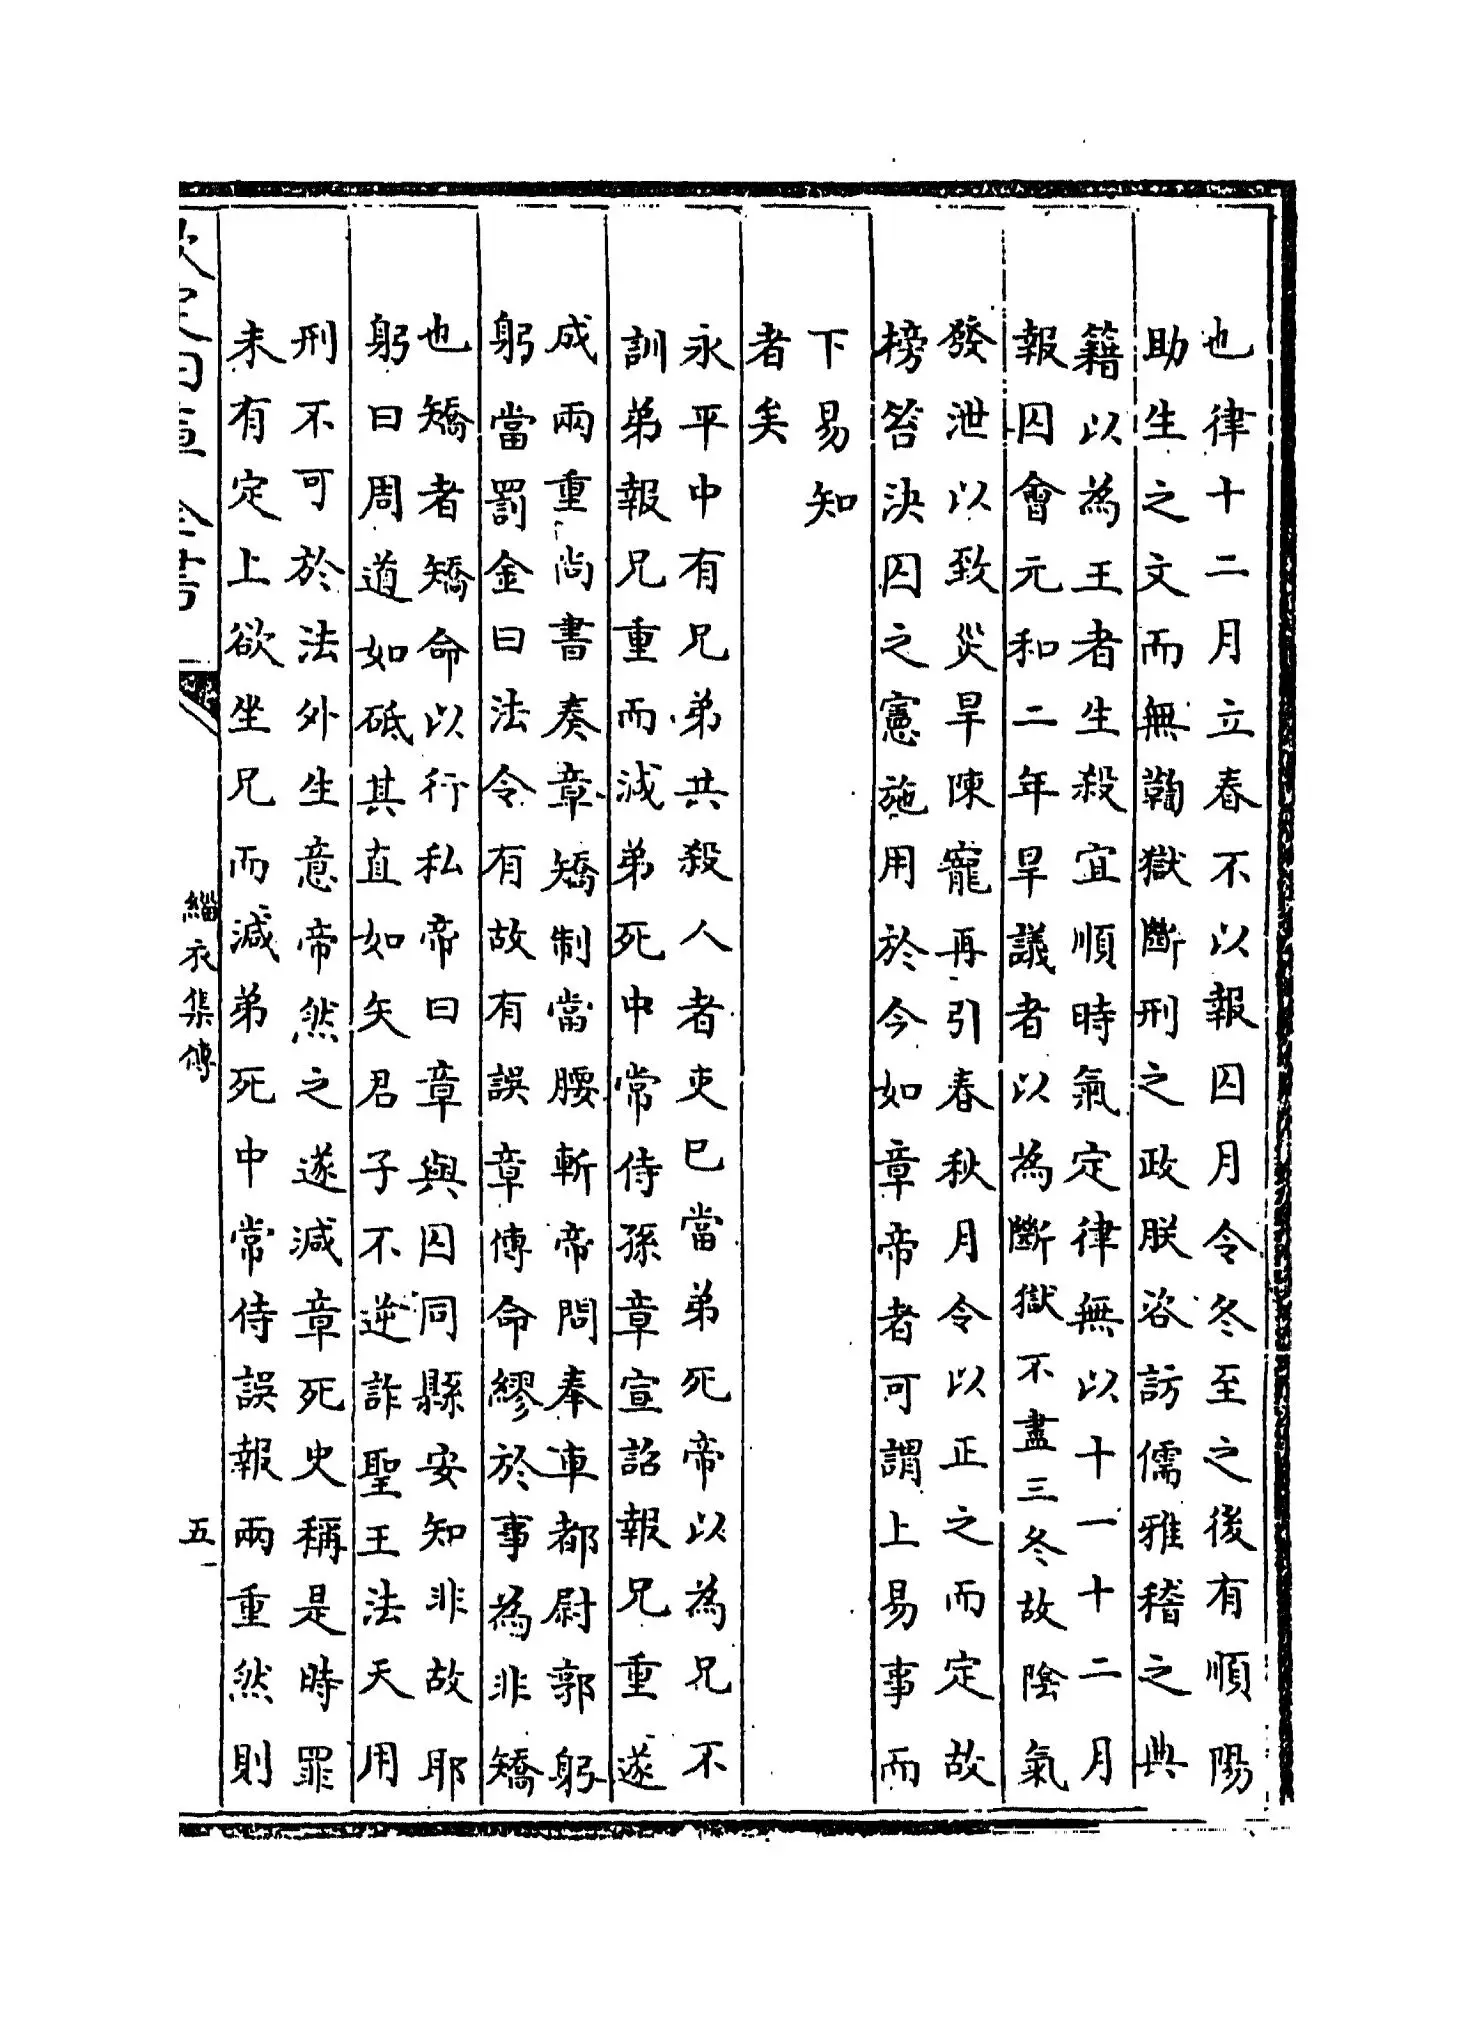 也律十二月立春不以報囚月令冬至之後有順陽
助生之文而無鞫獄斷刑之政朕咨訪儒雅稽之典
籍以為王者生殺宜順時氣定律無以十一十二月
報囚會元和二年旱議者以為斷獄不盡三冬故陰氣
發泄以致災旱陳寵再引春秋月令以正之而定故
榜笞決囚之憲施用於今如章帝者可謂上易事而
下易知
者矣
永平中有兄弟共殺人者吏已當弟死帝以為兄不
訓弟報兄重而減弟死中常侍孫章宣詔報兄重遂
成兩重尚書奏章矯制當腰斬帝問奉車都尉郭躬
躬當罰金曰法令有故有誤章傳命繆於事為非矯
也矯者矯命以行私帝曰章與囚同縣安知非故耶
躬曰周道如砥其直如矢君子不逆詐聖王法天用
刑不可於法外生意帝然之遂減章死史稱是時罪
未有定上欲坐兄而減弟死中常侍誤報兩重然則
欽定四庫全書
緇衣集傳
五